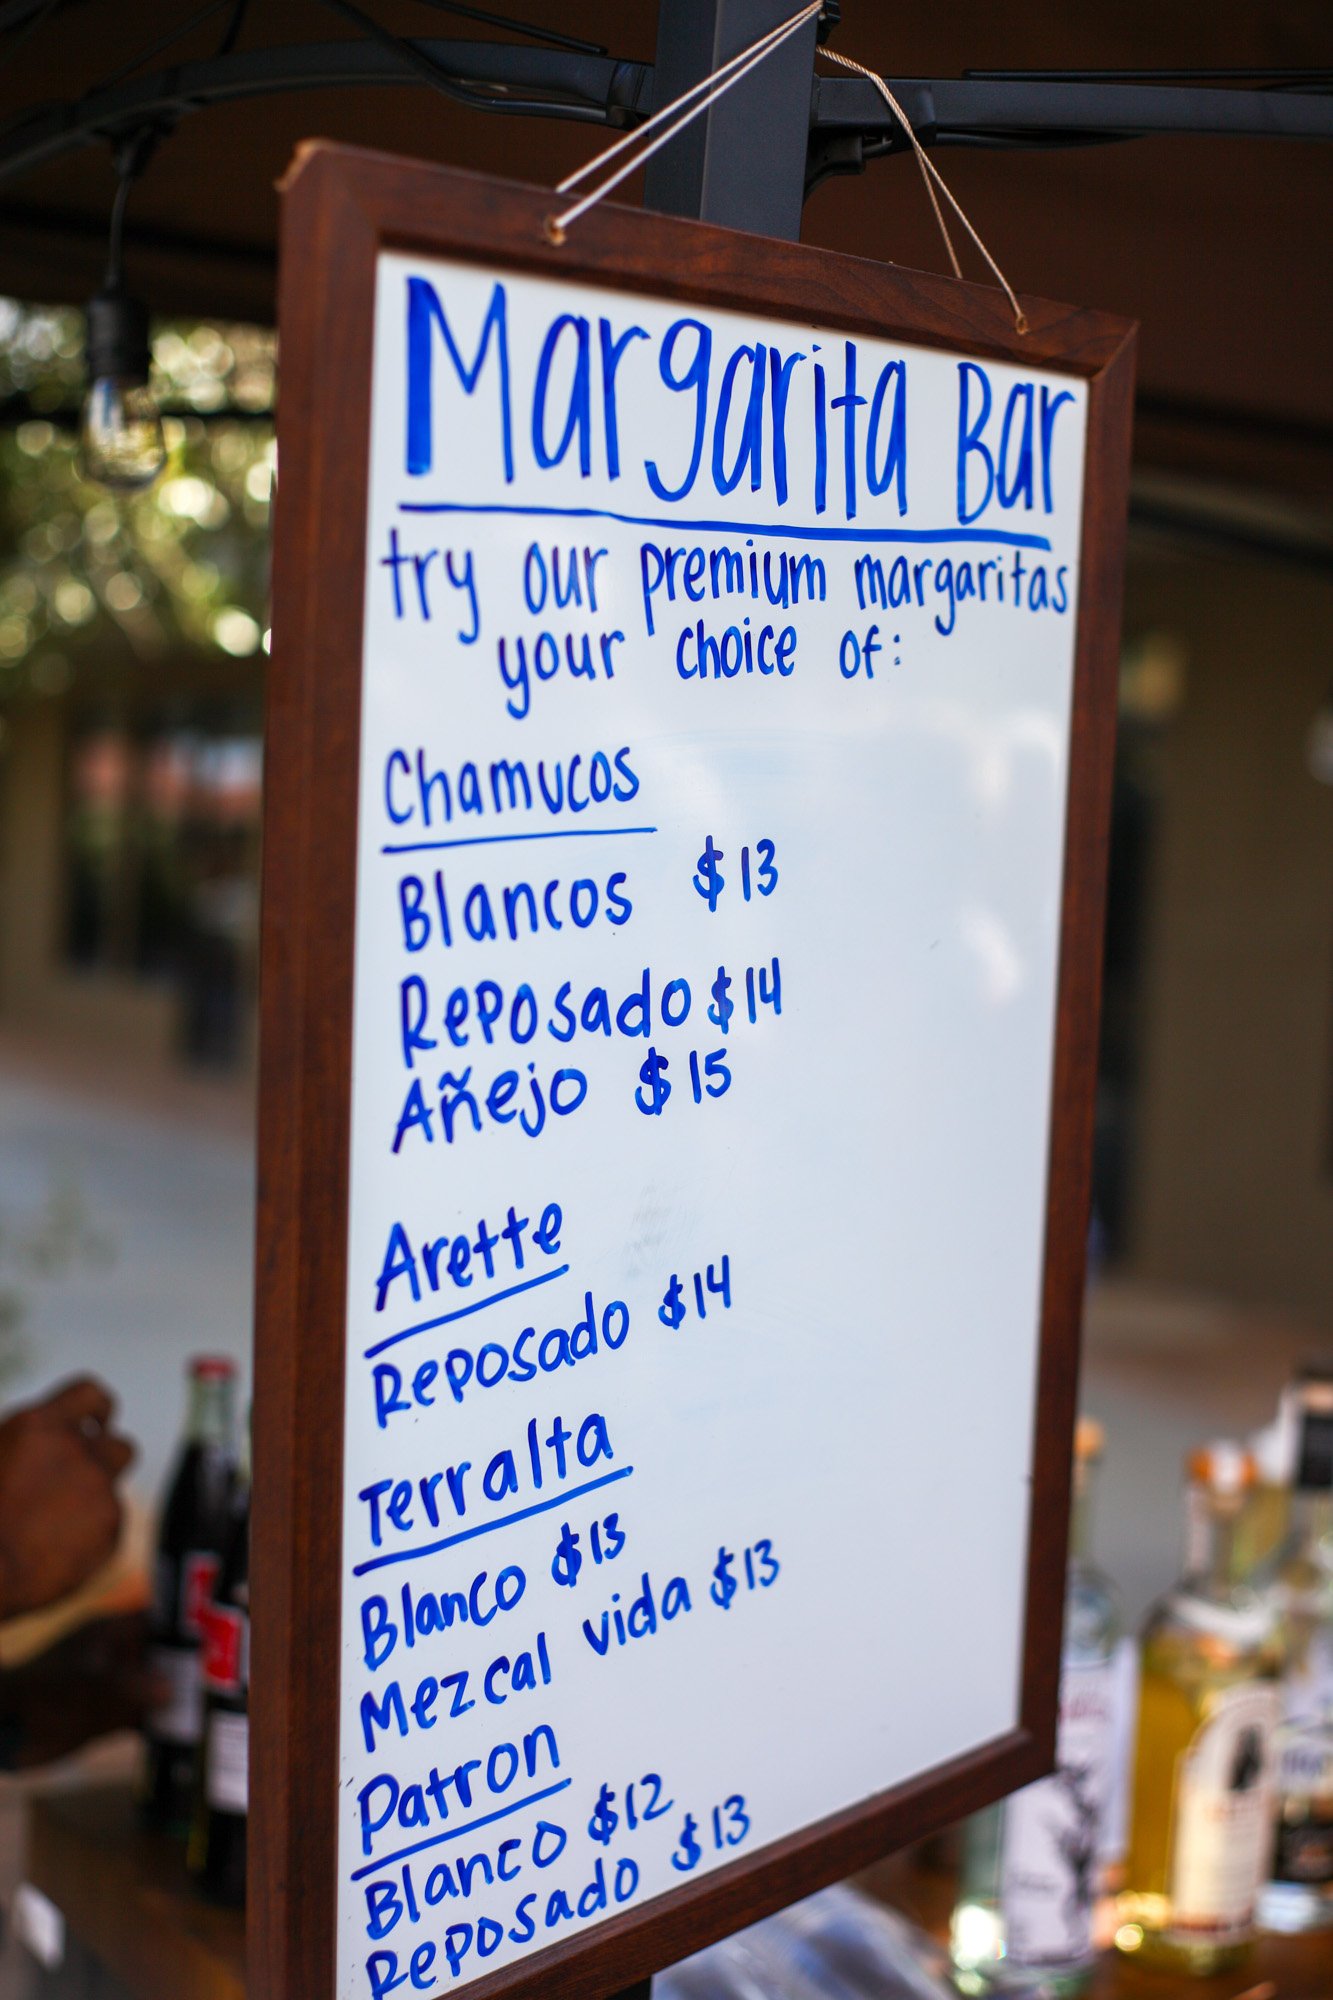 Margarita Bar
try our premium margaritas
your choice of:
Chamucos
Blancos $13
Reposado $14
Añejo $15
Arette
Reposado $14
Terralta
Blanco $13
Mezcal vida $13
Patron
Blanco $12
Reposado $13